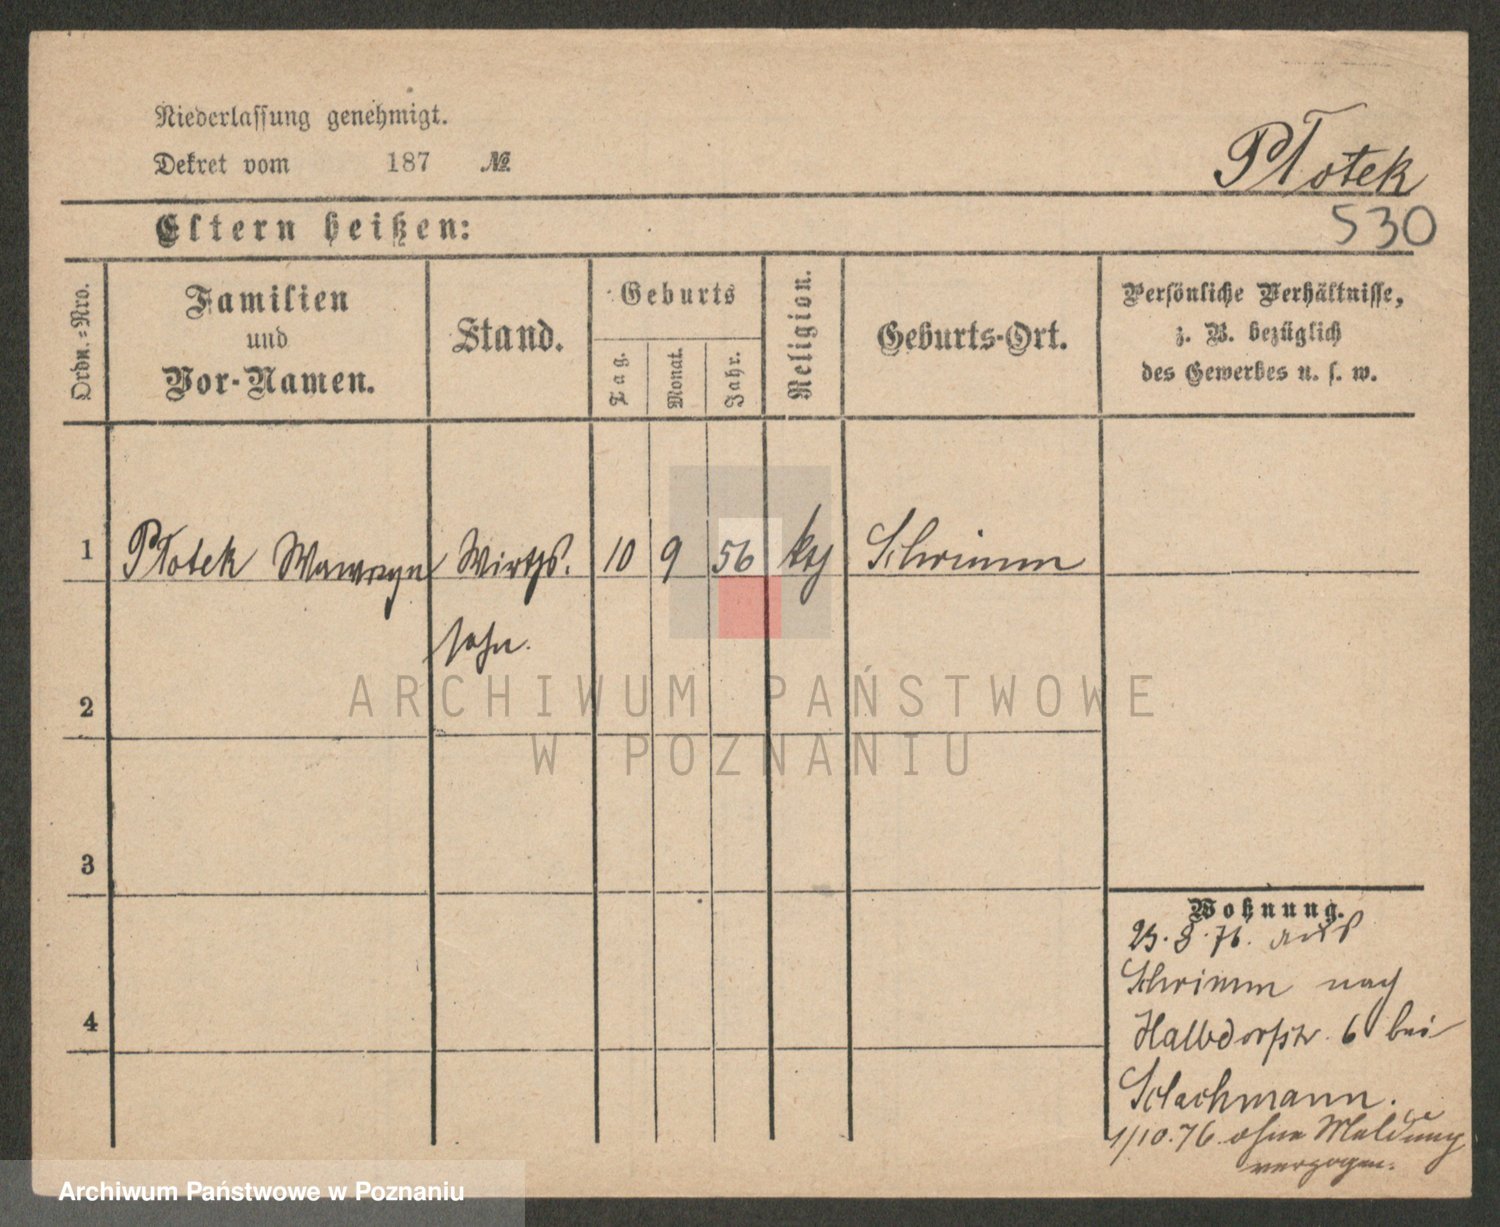 Niederlassung genehmigt.
Dekret vom 187 №
Płotek
530
Eltern heißen:
Ordn.=Nro.
Familien
und
Vor-Namen.
Stand.
Geburts
Tag.
Monat.
Jahr.
Religion.
Geburts-Ort.
Persönliche Verhältnisse,
z. B. bezüglich
des Gewerbes u. s. w.
1 Płotek Wawrzyn Wirths. 10 9 56 kth Schrimm
sohn.
2
3
4
Wohnung.
23. 8. 76. aus
Schrimm nach
Halbdorfstr. 6 bei
Schachmann.
1/10.76. ohne Meldung
verzogen.
ARCHIWUM PAŃSTWOWE
W POZNANIU
Archiwum Państwowe w Poznaniu